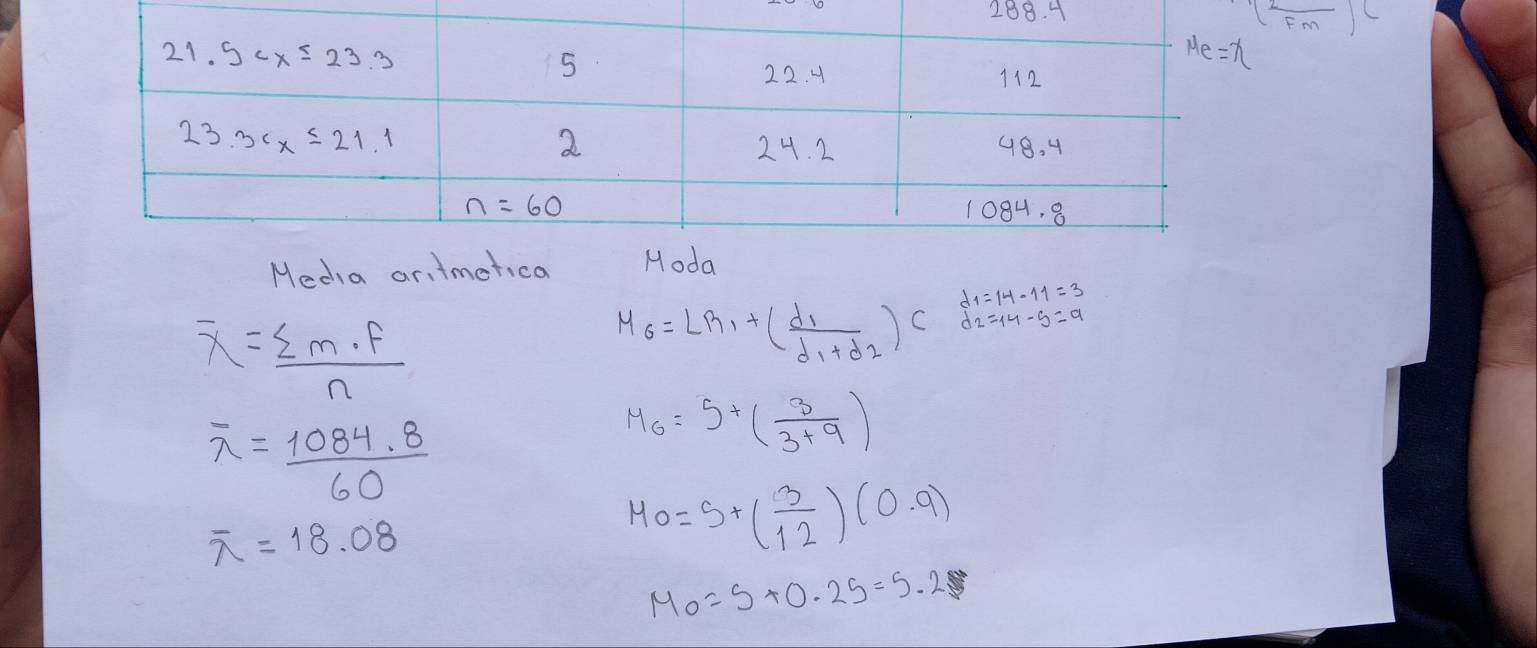 288.4
Fm
Me=x
21.5<x≤23.3 5 22.4 112
23.3<x≤21.1 2 24.2 48.4
n = 60 1084.8
Media aritmetica
x̄ = Σm.f / n
x̄ = 1084.8 / 60
x̄ = 18.08
Moda
M6 = LRi + (d1 / d1+d2) c
d1=14-11=3
d2=14-5=9
M6 = 5+ (3 / 3+9)
Mo = 5+ (3 / 12) (0.9)
Mo=5+0.25=5.2